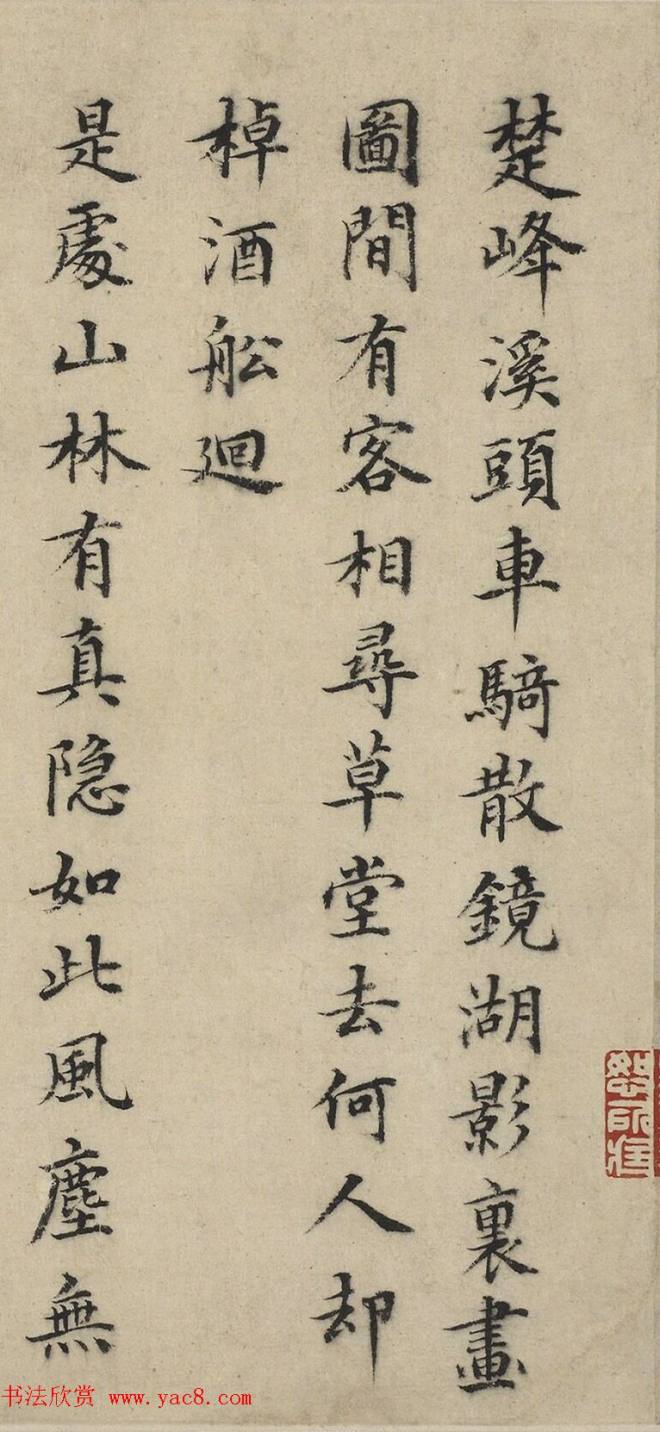 楚峰溪頭車騎散鏡湖影裏畫
圖間有客相尋草堂去何人却
棹酒舩迴
是處山林有真隐如此風塵無
书法欣赏 www.yac8.com